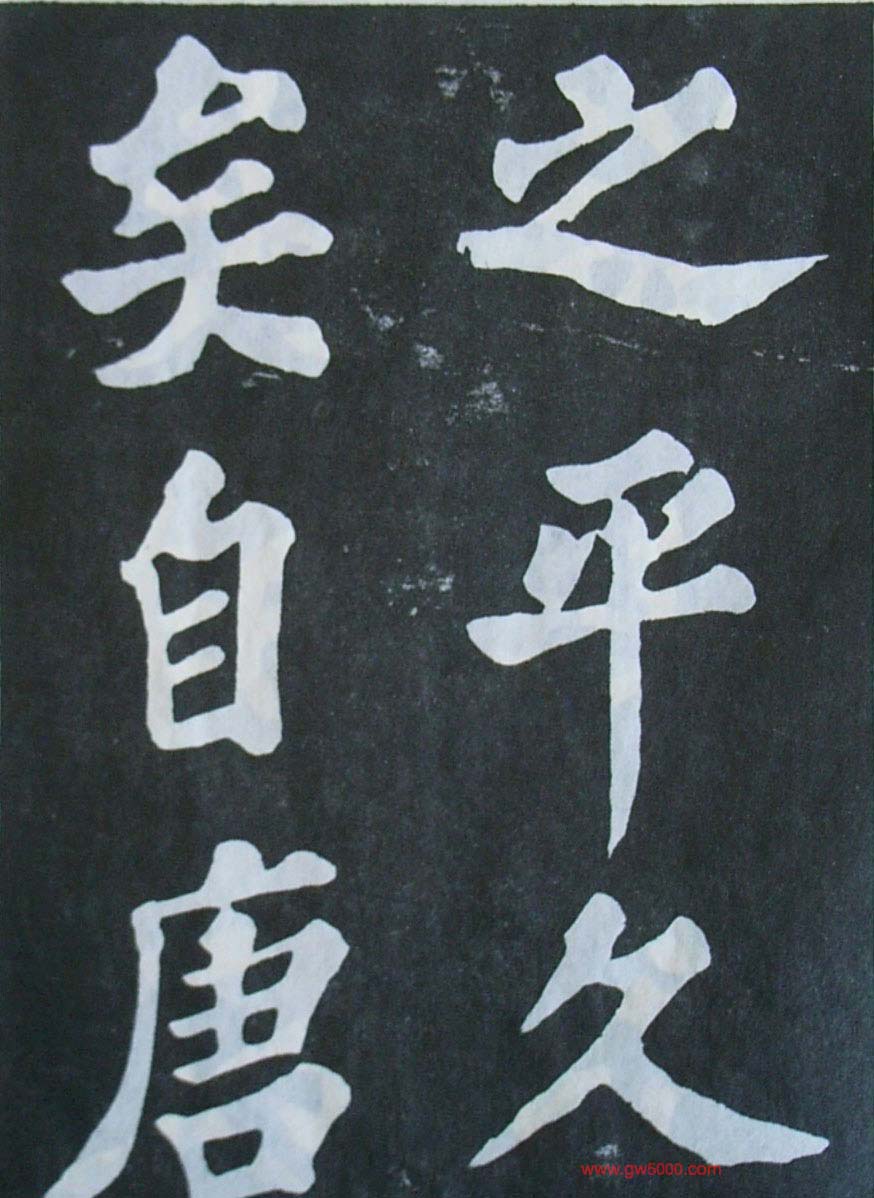 之平久
矣自唐
www.gw5000.com